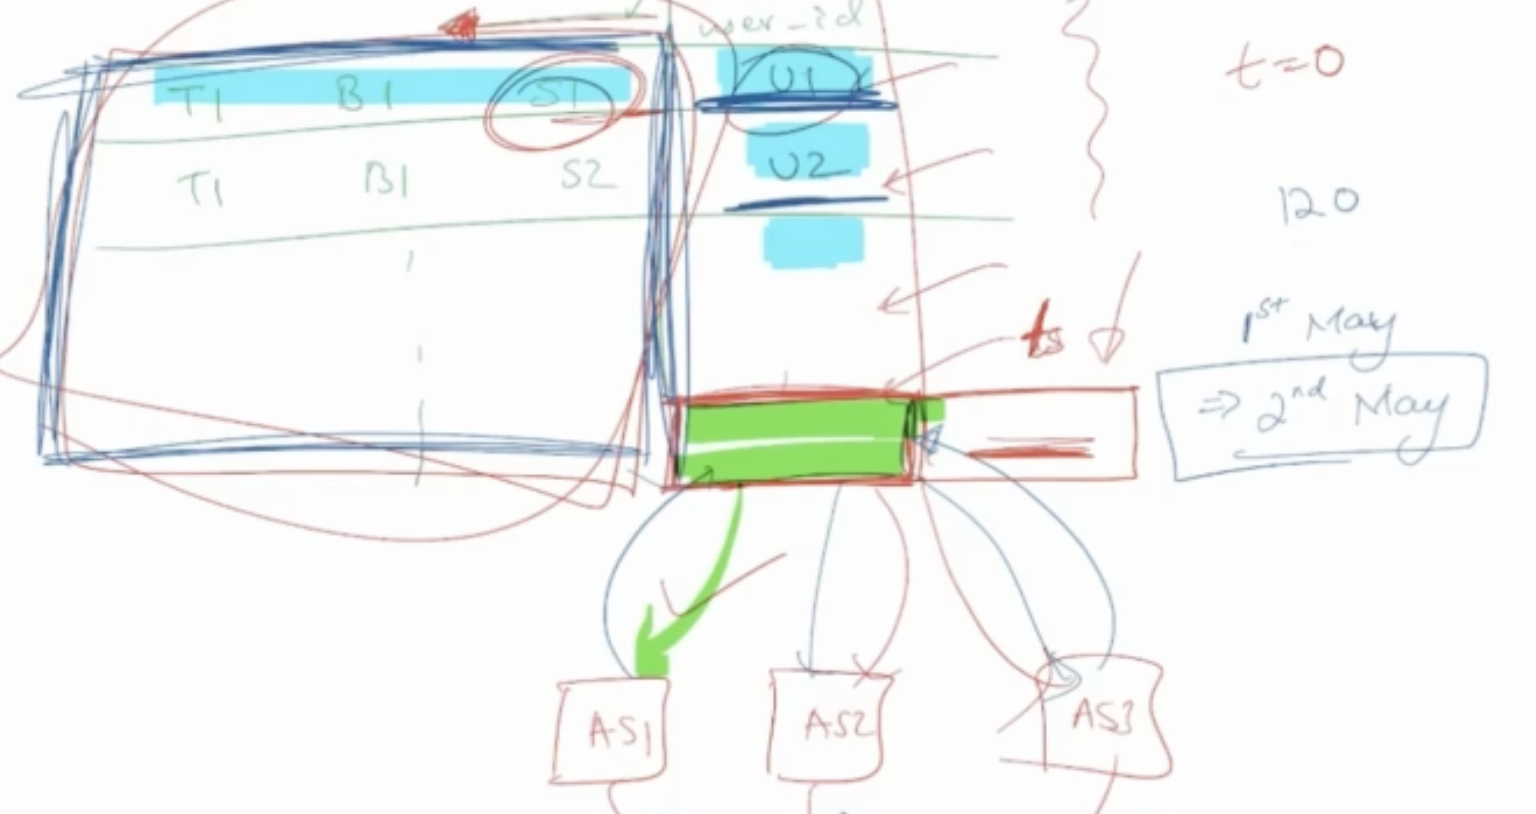 user_id
T1 B1 S1 U1
t=0
T1 B1 S2 U2
120
1st May
ts
⇒ 2nd May
AS1 AS2 AS3